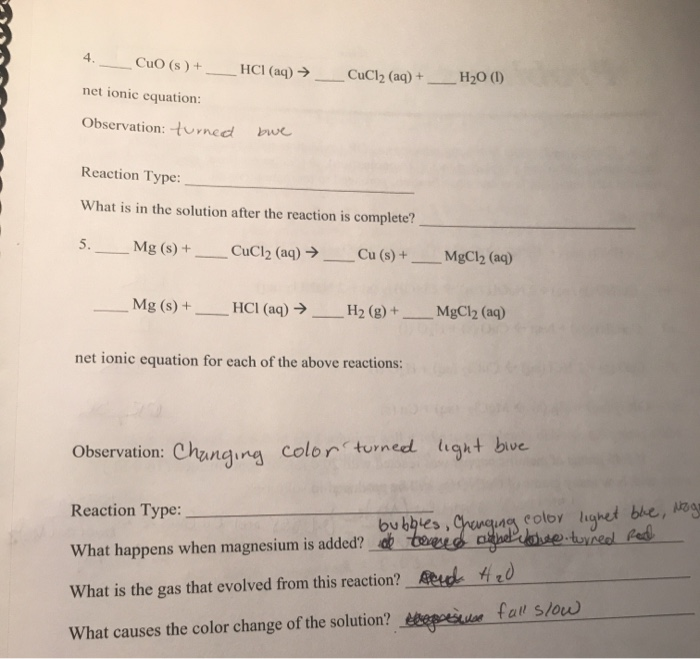 4. ____ CuO (s) + ____ HCl (aq) → ____ CuCl₂ (aq) + ____ H₂O (l)
net ionic equation:
Observation: turned blue
Reaction Type: ____
What is in the solution after the reaction is complete? ____
5. ____ Mg (s) + ____ CuCl₂ (aq) → ____ Cu (s) + ____ MgCl₂ (aq)
____ Mg (s) + ____ HCl (aq) → ____ H₂ (g) + ____ MgCl₂ (aq)
net ionic equation for each of the above reactions:
Observation: Changing color turned light blue
Reaction Type: ____
bubbles, Changing color lighet ble,
What happens when magnesium is added? turned Red
What is the gas that evolved from this reaction? H₂O
What causes the color change of the solution? fall slow